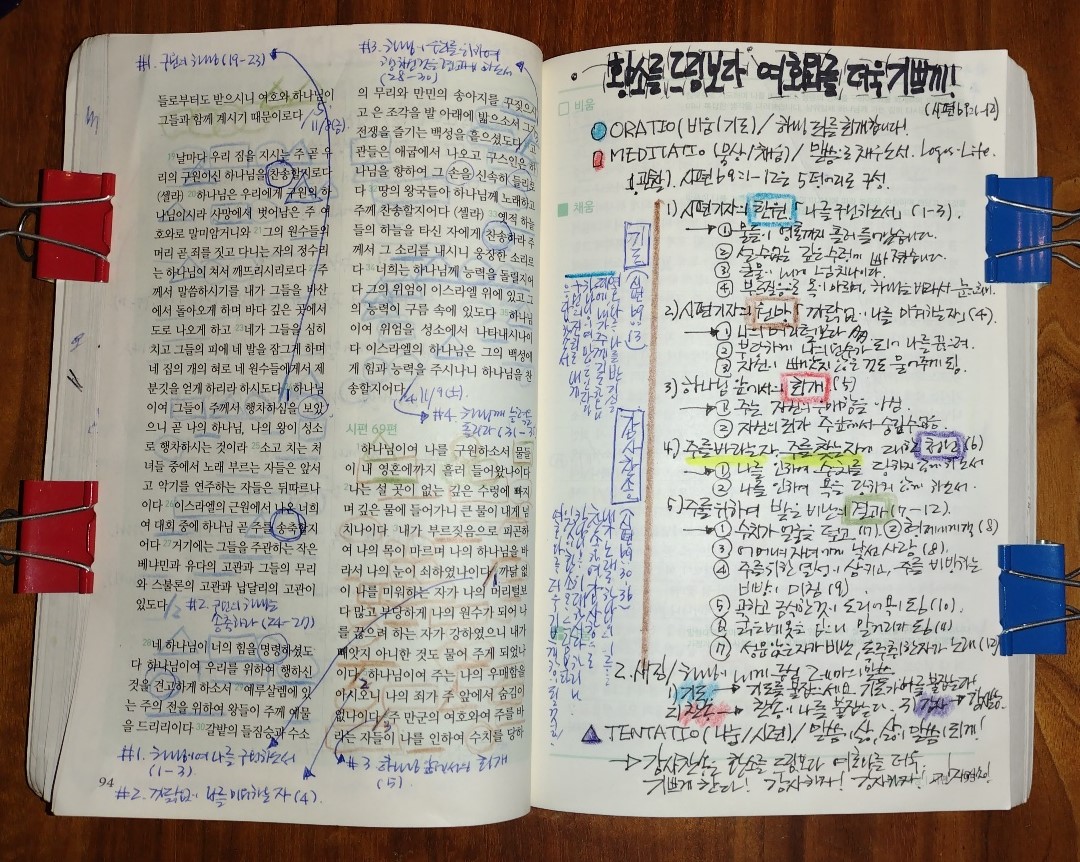 #1. 구원의 하나님 (19-23)
들로부터도 받으시니 여호와 하나님이
그들과 함께 계시기 때문이로다
11/8(금)
19 날마다 우리 짐을 지시는 주 곧 우
리의 구원이신 하나님을 찬송할지로다
(셀라) 20 하나님은 우리에게 구원의 하
나님이시라 사망에서 벗어남은 주 여
호와로 말미암거니와 21 그의 원수들의
머리 곧 죄를 짓고 다니는 자의 정수리
는 하나님이 쳐서 깨뜨리시리로다 22 주
께서 말씀하시기를 내가 그들을 바산
에서 돌아오게 하며 바다 깊은 곳에서
도로 나오게 하고 23 네가 그들을 심히
치고 그들의 피에 네 발을 잠그게 하며
네 집의 개의 혀로 네 원수들에게서 제
분깃을 얻게 하리라 하시도다 24 하나님
이여 그들이 주께서 행차하심을 보았
으니 곧 나의 하나님, 나의 왕이 성소
로 행차하시는 것이라 25 소고 치는 처
녀들 중에서 노래 부르는 자들은 앞서
고 악기를 연주하는 자들은 뒤따르나
이다 26 이스라엘의 근원에서 나온 너희
여 대회 중에 하나님 곧 주를 송축할지
어다 27 거기에는 그들을 주관하는 작은
베냐민과 유다의 고관과 그들의 무리
와 스불론의 고관과 납달리의 고관이
있도다
#2. 구원의 하나님을
송축하라 (24-27)
28 네 하나님이 너의 힘을 명령하셨도
다 하나님이여 우리를 위하여 행하신
것을 견고하게 하소서 29 예루살렘에 있
는 주의 전을 위하여 왕들이 주께 예물
을 드리리이다 30 갈밭의 들짐승과 수소
#1. 하나님이여 나를 구원하소서
(1-3)
94
#2. 까닭없이 나를 미워하는 자 (4)
(28-30)
의 무리와 만민의 송아지를 꾸짖으시
고 은 조각을 발 아래에 밟으소서 그가
전쟁을 즐기는 백성을 흩으셨도다 31
고관들은 애굽에서 나오고 구스인은 하
나님을 향하여 그 손을 신속히 들리로
다 32 땅의 왕국들아 하나님께 노래하고
주께 찬송할지어다 (셀라) 33 옛적 하늘
들의 하늘을 타신 자에게 찬송하라 주
께서 그 소리를 내시니 웅장한 소리로
다 34 너희는 하나님께 능력을 돌릴지어
다 그의 위엄이 이스라엘 위에 있고 그
의 능력이 구름 속에 있도다 35 하나님
이여 위엄을 성소에서 나타내시나이
다 이스라엘의 하나님은 그의 백성에
게 힘과 능력을 주시나니 하나님을 찬
송할지어다
11/9(토)
#4. 하나님께 능력을
돌리라 (31-35)
시편 69편
1 하나님이여 나를 구원하소서 물들
이 내 영혼에까지 흘러 들어왔나이다
2 나는 설 곳이 없는 깊은 수렁에 빠지
며 깊은 물에 들어가니 큰 물이 내게 넘
치나이다 3 내가 부르짖음으로 피곤하
여 나의 목이 마르며 나의 하나님을 바
라서 나의 눈이 쇠하였나이다 4 까닭 없
이 나를 미워하는 자가 나의 머리털보
다 많고 부당하게 나의 원수가 되어 나
를 끊으려 하는 자가 강하였으니 내가
빼앗지 아니한 것도 물어 주게 되었나
이다 5 하나님이여 주는 나의 우매함을
아시오니 나의 죄가 주 앞에서 숨김이
없나이다 6 주 만군의 여호와여 주를 바
라는 자들이 나를 인하여 수치를 당하
#3. 하나님 앞에서의 회개
(5)
황소를 드림보다 여호와를 더욱 기쁘게!
(시편69:1-12)
비움
ORATIO (비움(기도) / 하나님 저를 회개합니다!
MEDITATIO (묵상/채움) / 말씀으로 채우소서. Logos-Life.
1. 관찰. 시편 69:1-12는 5 덩어리로 구성.
채움
1) 시편기자의 탄원 「나를 구원하소서」 (1-3).
① 물들이 영혼까지 흘러 들어왔습니다.
② 설 수 없는 깊은 수렁에 빠졌습니다.
③ 큰물이 내게 넘치나이다.
④ 부르짖음으로 목이 마르며, 하나님 바라서 눈 쇠해.
2) 시편기자의 절망 「까닭없이 나를 미워하는 자」 (4).
① 나의 머리털보다 많음
② 부당하게 나의 원수가 되어 나를 끊으려.
③ 자신이 빼앗지 않은 것도 물어주게 됨.
3) 하나님 앞에서의 회개 (5)
① 주는 자신의 우매함을 아심.
② 자신의 죄가 주 앞에서 숨김 없음.
4) 주를 바라는 자, 주를 찾는 자에 대한 청원 (6)
① 나를 인하여 수치를 당하지 않게 하소서
② 나를 인하여 욕을 당하지 않게 하소서.
5) 주를 위하여 받는 비난의 결과 (7-12).
① 수치가 얼굴을 덮고 (7). ② 형제에게 객 (8)
③ 어머니 자녀에게 낯선 사람 (8).
④ 주를 위한 열성이 삼키고, 주를 비방하는
비방이 미침 (9).
⑤ 곡하고 금식한 것이 도리어 욕이 됨 (10).
⑥ 굵은 베옷을 입으니 말거리가 됨 (11)
⑦ 성문 앉은 자가 비난, 독주 취한 자가 노래 (12)
기도
(시편69:13)
감사찬송
(시편69:30-31)
2. 새김 / 하나님 내게 주신 그 레마의 말씀
1) 기도 → 기도를 붙잡으세요. 기도가 나를 붙잡는다
2) 찬송 → 찬송이 나를 붙잡는다. 3) 감사 → 감사찬송.
TENTATIO (나눔/시련) / 말씀이 삶, 삶이 말씀되게!
→ 감사찬송은 황소를 드림보다 여호와를 더욱
기쁘게 한다! 감사하자! 감사하자!